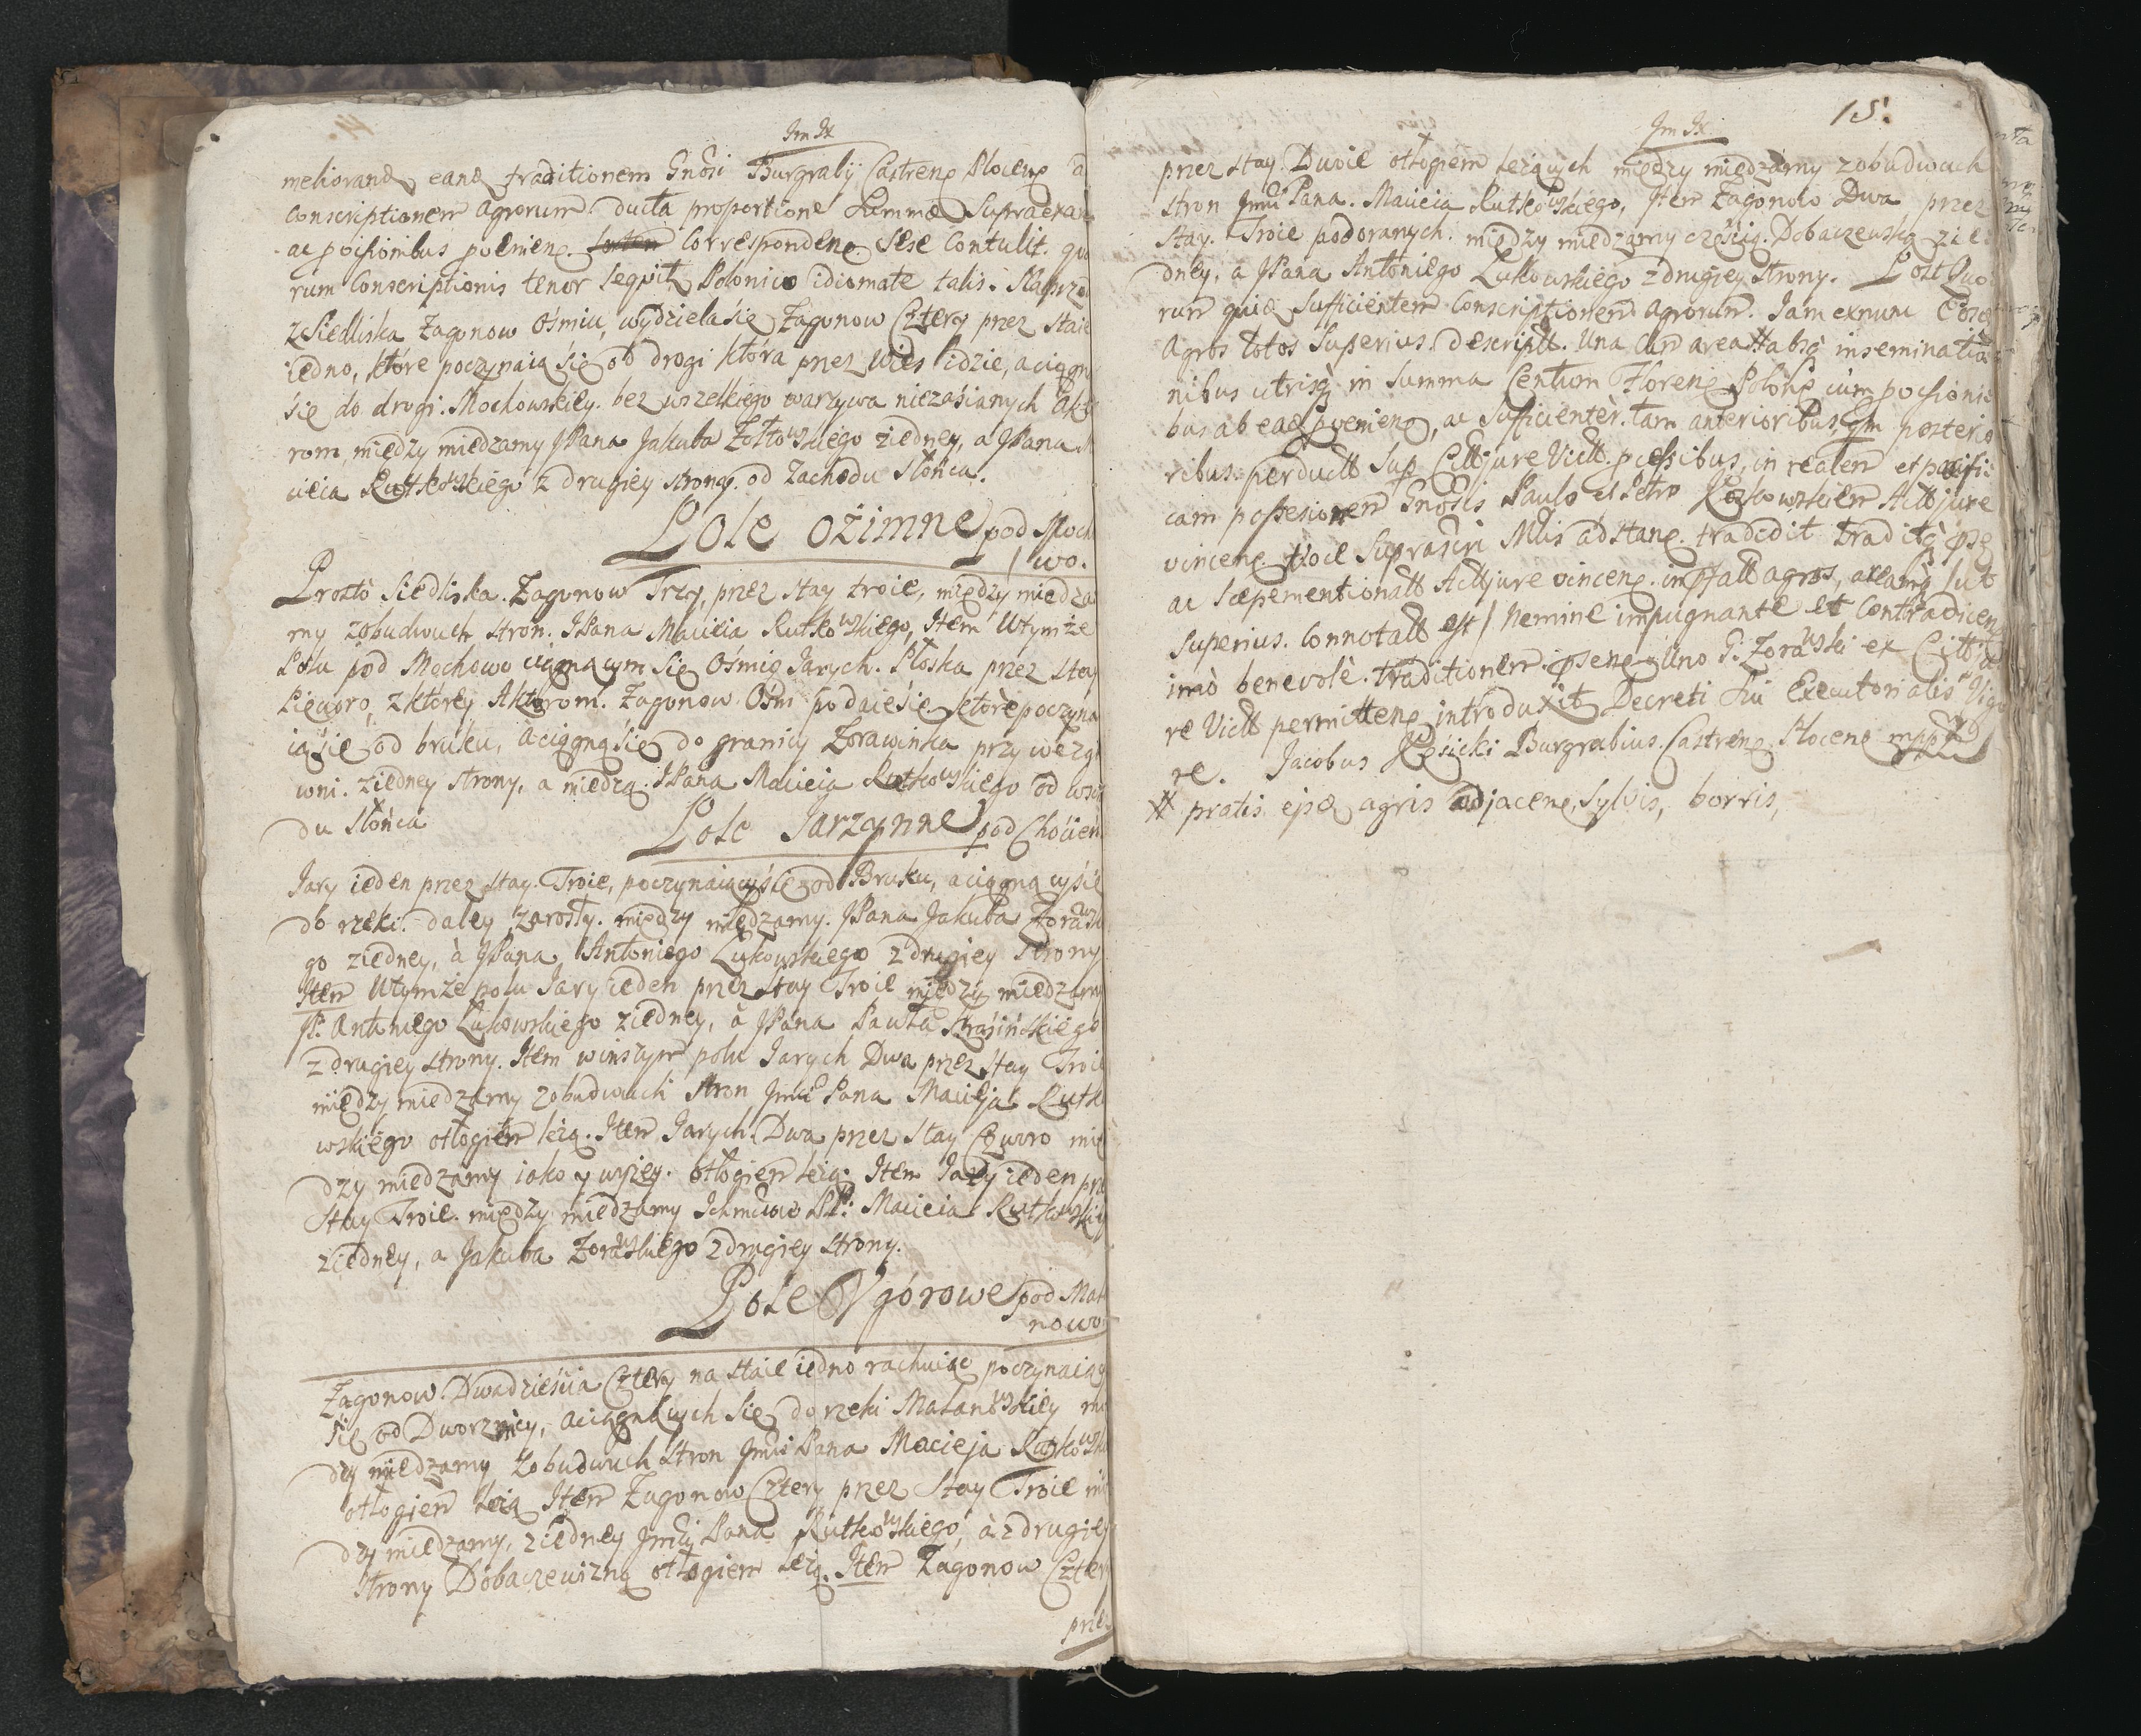 Im Ix
meliorand eand traditionem Gnosi Burgrabij Castren Plocen a
Conscriptionem agrorum ducta proportione Summæ Supra
ac poenien Corresponden Sese Contulit. quo
rum Conscriptionis tenor Sequit Polonico idiomate talis. Naprzo
z Siedliska Zagonow Ośmiu, wydziela się Zagonow Cztery przez staie
iedno, ktore poczynaią się od drogi która przez wieś idzie, a ciągną
się do drogi Mochowskiey bez wszelkiego warzywa niezasianych Akto
rom, między miedzamy JPana Jakuba Zołtowskiego ziedney, a JPana Ma
cieia Rutkowskiego z drugiey strony od Zachodu Słońca.
Pole ozimne pod Moch
owo.
Prosto Siedliska Zagonow Trzy, przez stay troie, między miedza
my zobudwuch stron JPana Macieia Rutkowskiego, Item Wtymże
Polu pod Mochowo ciągnącym się Ośmię Jarych. Płoska przez stay
Pięcioro, z ktorey Aktorom Zagonow Ośm podaie się, ktore poczyna
ią się od bruku, a ciągną się do granicy Zorawinka przy
wni ziedney strony, a miedzą JPana Macieia Rutkowskiego od wscho
du Słońca
Pole Jarzynne pod Chocień
Jary ieden przez stay Troie, poczynaiący się od Bruku, a ciągnący się
do rzeki daley zarosły między miedzamy JPana Jakuba Zorawskie
go ziedney, à JPana Antoniego Lukowskiego z drugiey strony
Item Wtymże polu Jary ieden przez stay Troie między miedzamy
JP. Antoniego Lukowskiego ziedney, à JPana Pawła Krasińskiego
z drugiey strony. Item w polu Jarych Dwa przez stay Troie
między miedzamy zobudwuch stron Jmci Pana Macieja Rutko
wskiego odłogiem leżą. Item Jarych Dwa przez stay Czworo mię
dzy miedzamy iako y wyżey odłogiem leżą. Item Jary ieden prze
stay Troie między miedzamy Ichmciow PP: Macieia Rutkowskieg
ziedney, a Jakuba Zorawskiego z drugiey strony.
Pole Vgórowe pod Mal
nowo
Zagonow Dwadzieścia Cztery na staie iedno rachuiąc poczynaiący
się od Dworznicy, aciągnących się do rzeki Malanowskiey mię
dzy miedzamy zobudwuch stron Jmci Pana Macieja Rutkowski
odłogiem leżą Item Zagonow Cztery przez stay Troie mię
dzy miedzamy, ziedney Jmci Pana Rutkowskiego, à z drugiey
strony Dobaczewizną odłogiem leżą. Item Zagonow Cztery
przez
Im Ix
15.
przez stay Dwoie odłogiem leżących między miedzamy zobudwuch
stron Jmci Pana Macieia Rutkowskiego, Item Zagonow Dwa przez
stay Troie podoranych między miedzamy częścią Dobaczewską z ie
dney, a JPana Antoniego Lukowskiego z drugiey strony. Post Quo
rum quid Sufficientem Conscriptionem agrorum. Jam exnunc Eosd
Agros totos Superius descriptt. Una Cum area # absq inseminatio
nibus utrisq in Summa Centum Floren Polon cum
bus ab ead poenien, ac Sufficientèr tam anterioribus, qm posterio
ribus perductt Sup Cittjure Victt in realem et pacifi
cam possesionem Gnosis Paulo et Petro Kozłowskiem Acttjure
vincen suprascri Mlis adstan tradidit tradit
ac Sæpementionatt Acttjure vincen in agros, areamq sub
Superius Connotatt est / Nemine impugnante et Contradicen
imò benevolè traditionem Gno G: Zorawski ex Citt ju
re Victt permitten introduxit Decreti sui Executorialis Vigo
re. Jacobus Kęsicki Burgrabius Castren Plocen mppa
# pratis ejsd agris adjacen, Sylvis, borris,